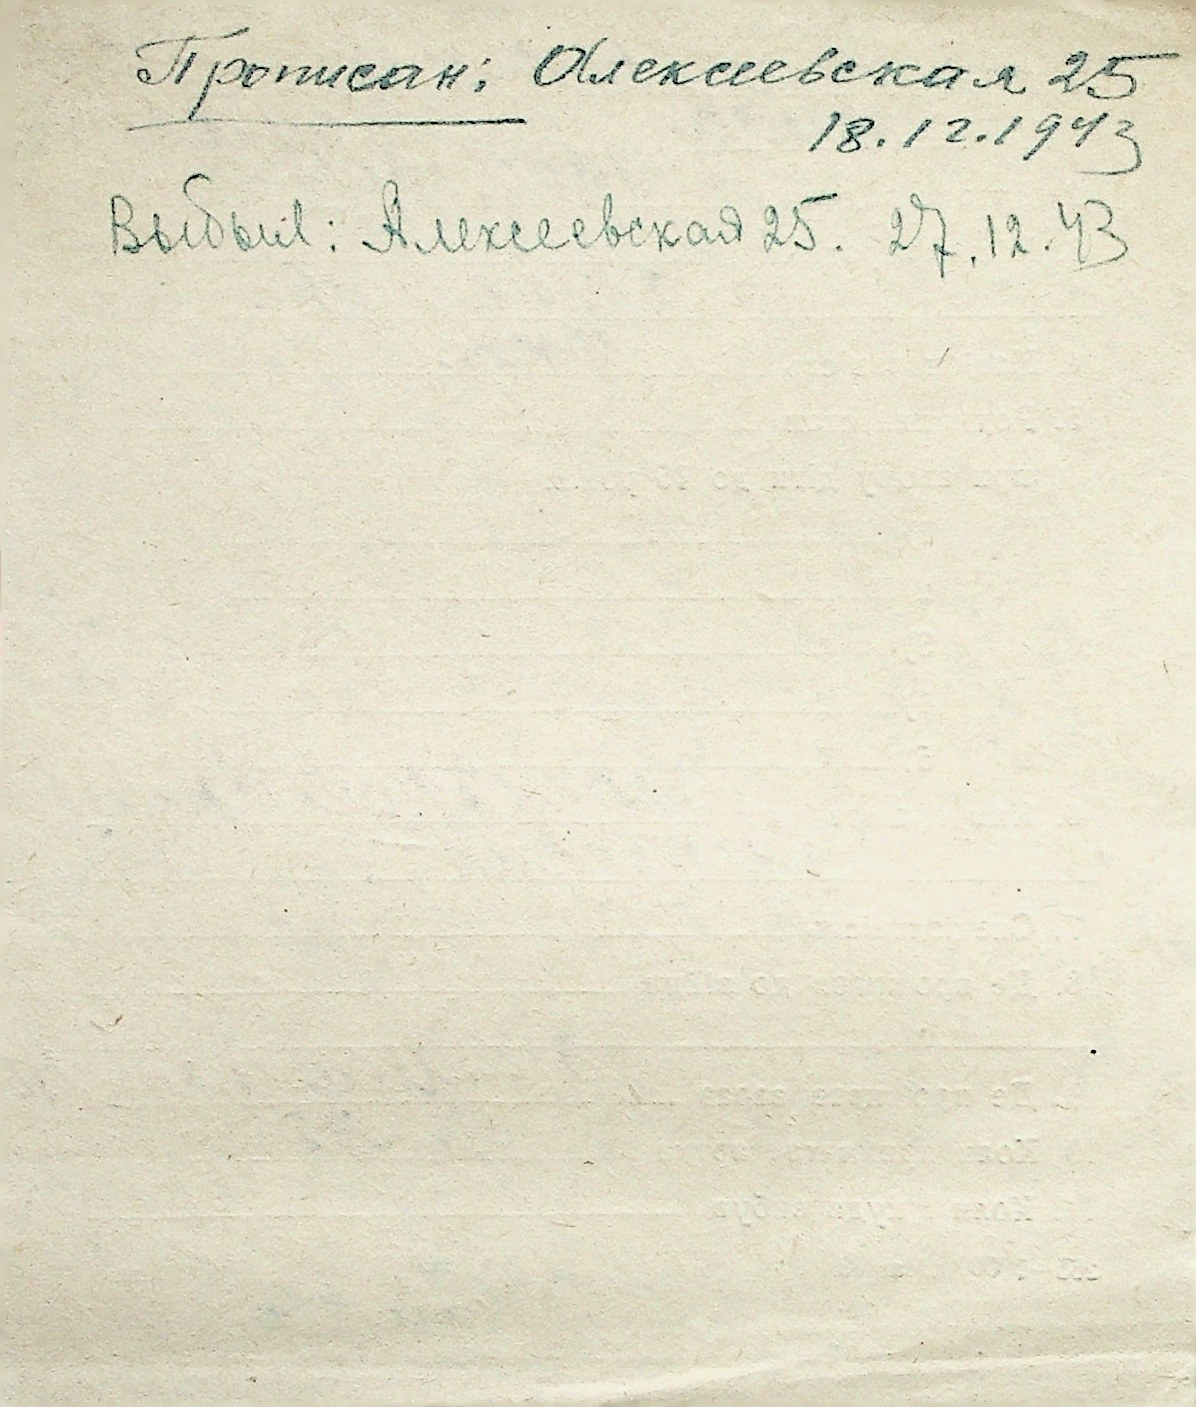 Прописан: Алексеевская 25
18.12.1943
Выбыл: Алексеевская 25. 27.12.43